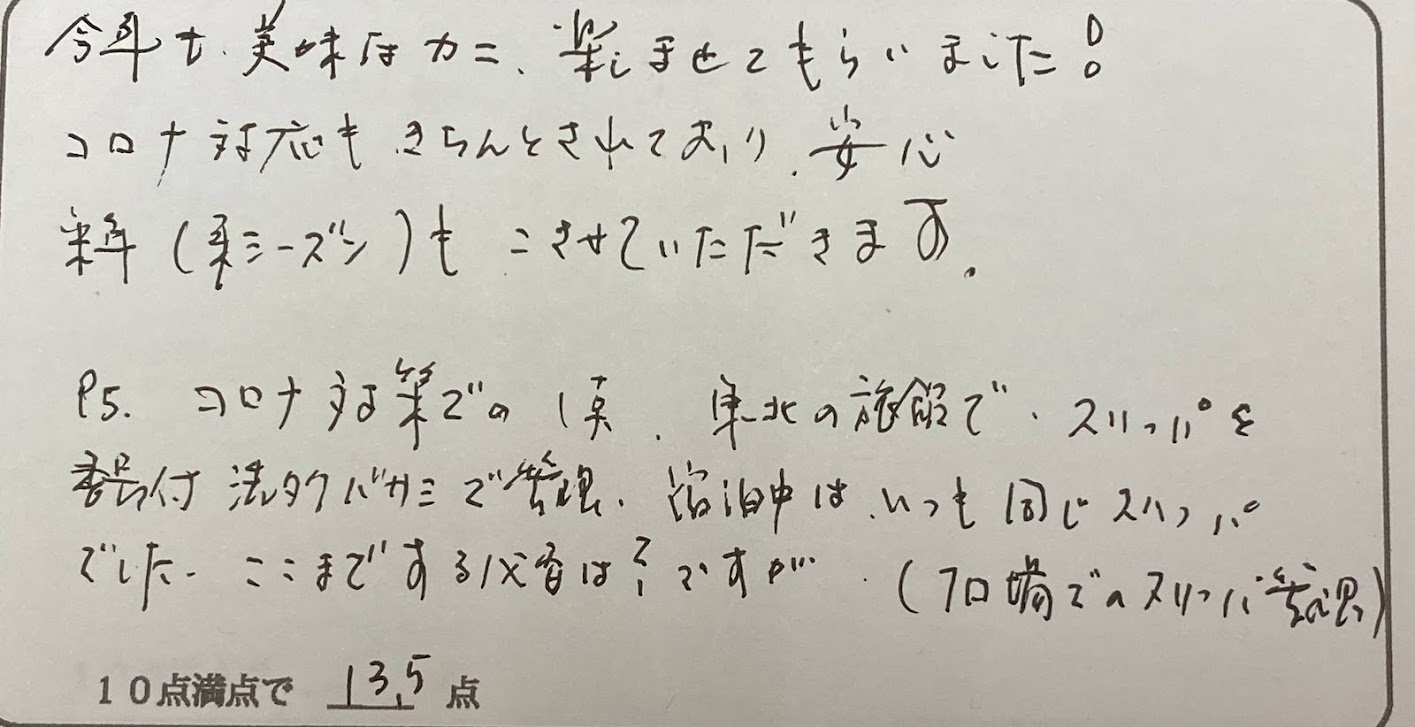 今年も、美味しいカニ、楽しませてもらいました!
コロナ対応もきちんとされており、安心
来年(来シーズン)もこさせていただきます。
PS. コロナ対策での1葉、東北の旅館で、スリッパを
番号付洗タクバサミで管理、宿泊中は、いつも同じスリッパ
でした。ここまでする必要は?ですが・・(フロ場でのスリッパ管理)
10点満点で 13.5 点